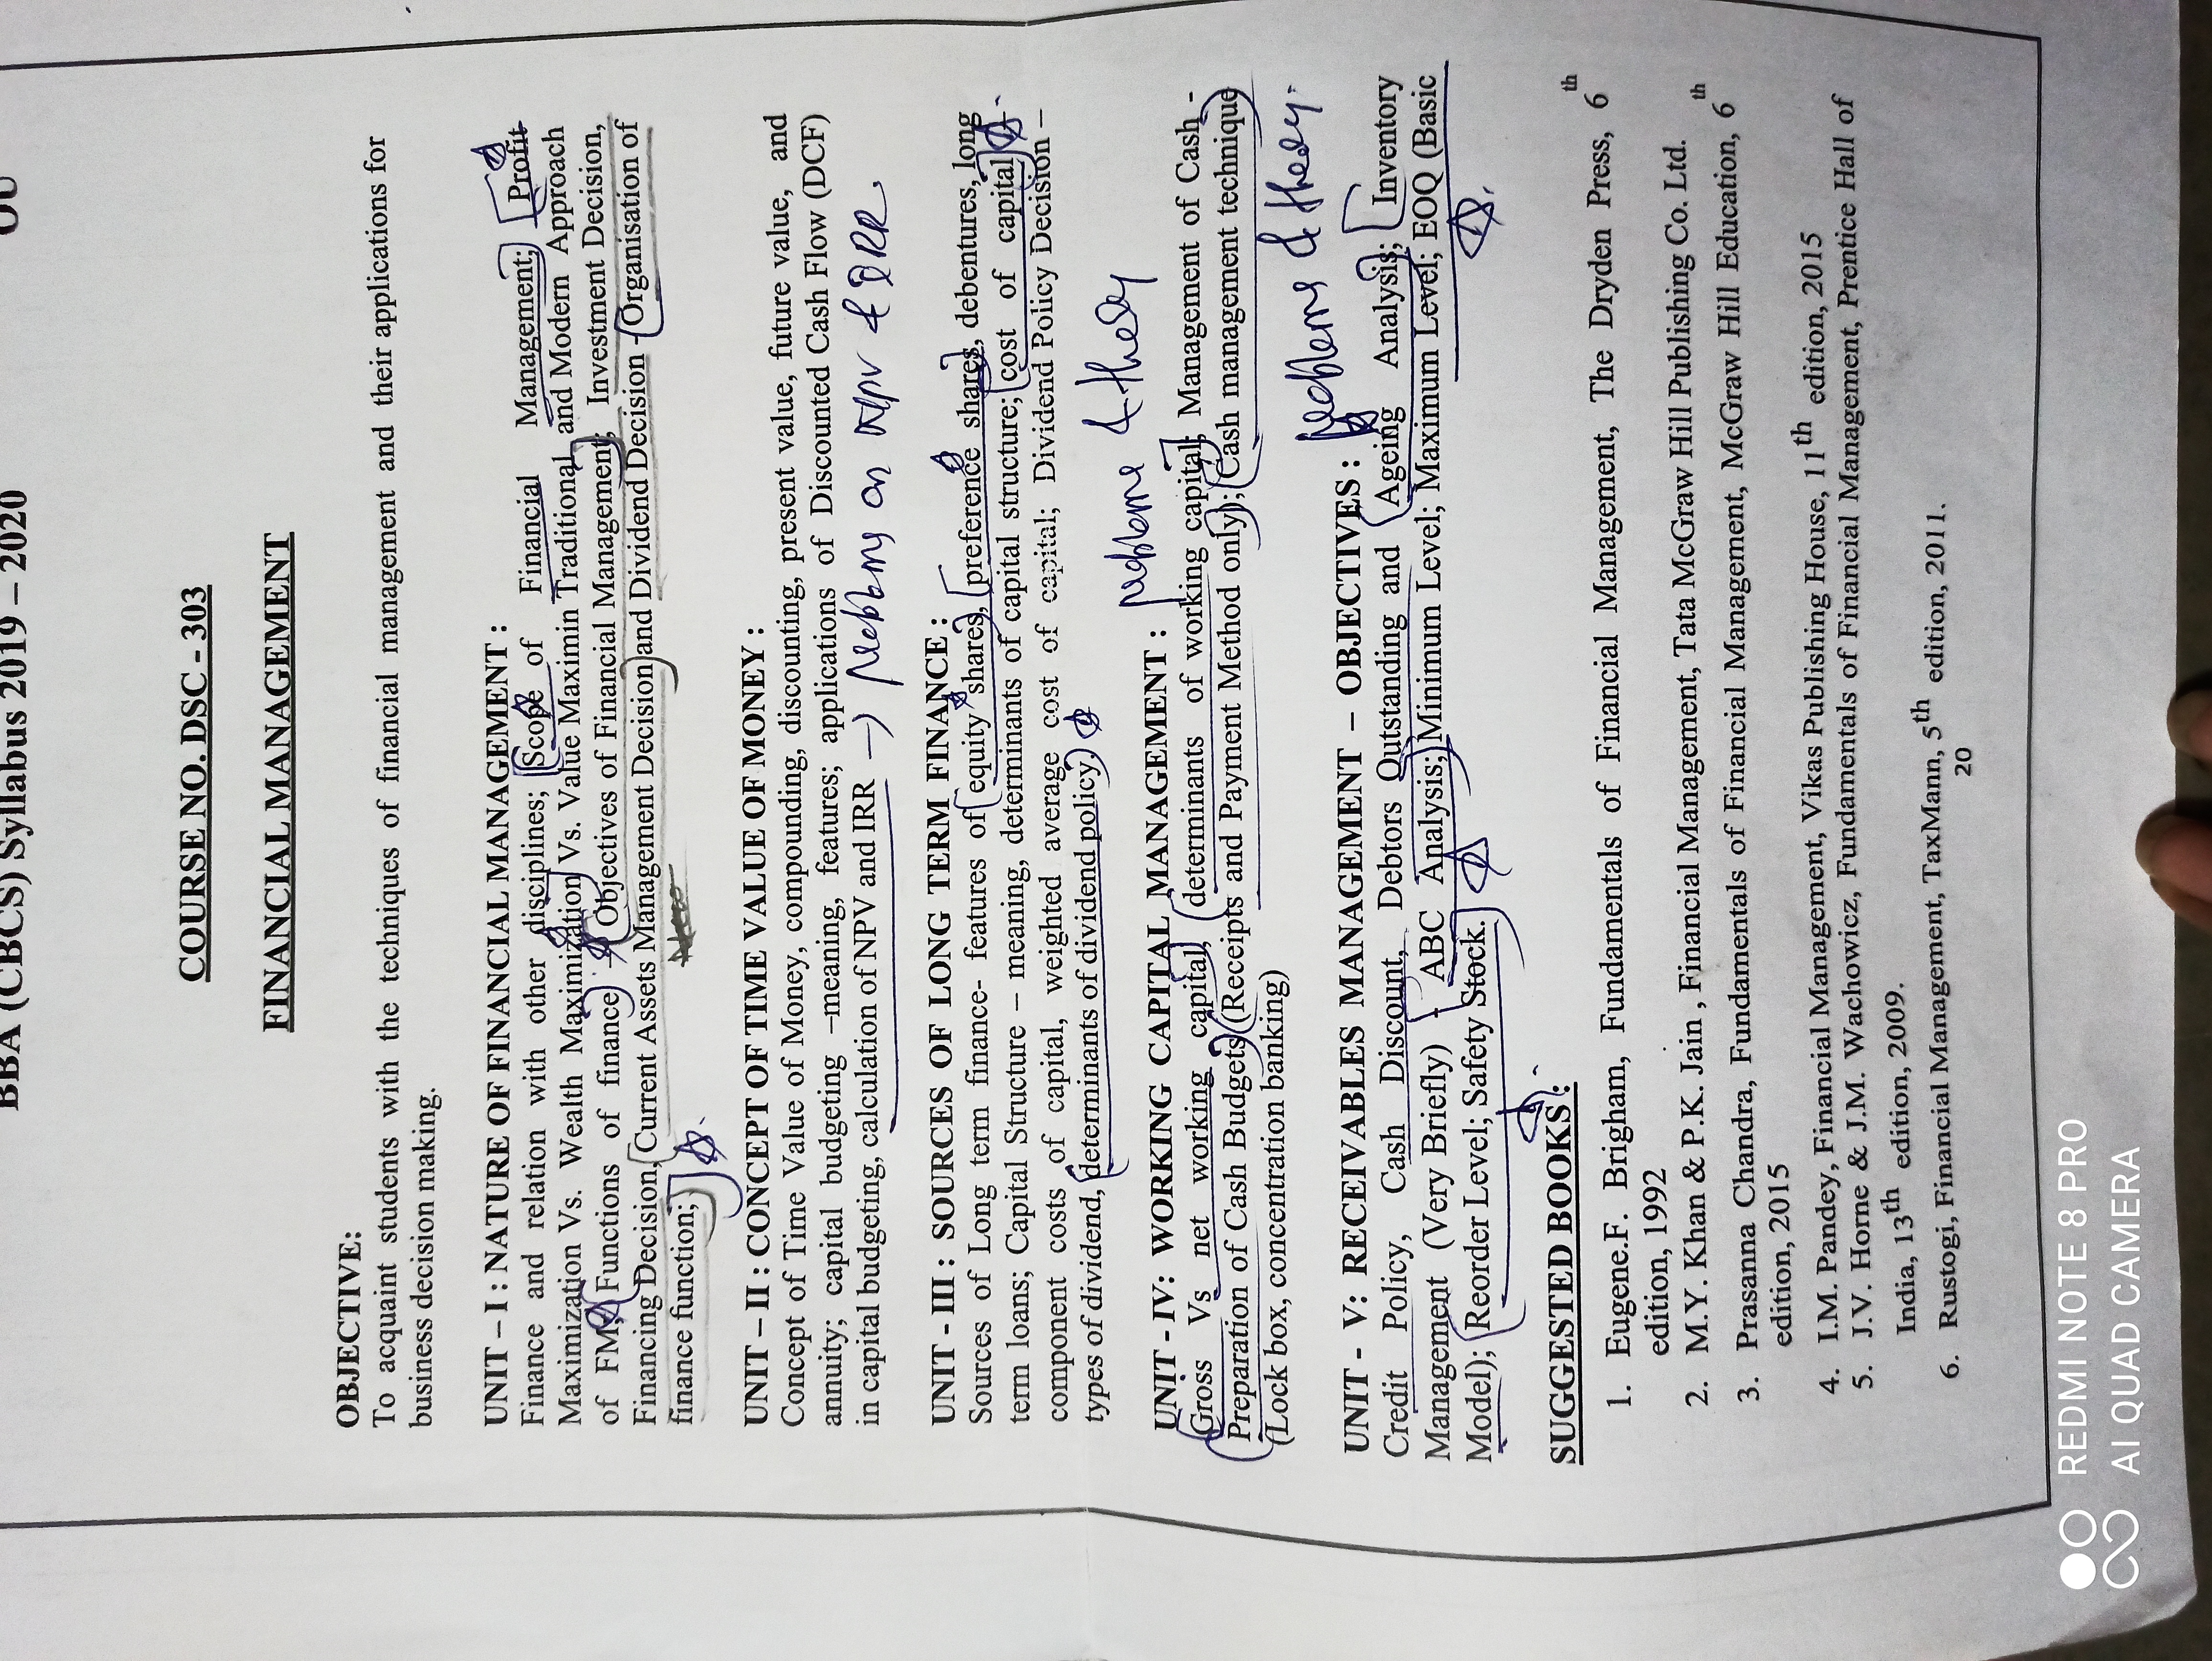 BBA (CBCS) Syllabus 2019 – 2020
OU
COURSE NO. DSC - 303
FINANCIAL MANAGEMENT
OBJECTIVE:
To acquaint students with the techniques of financial management and their applications for
business decision making.
UNIT – I : NATURE OF FINANCIAL MANAGEMENT :
Finance and relation with other disciplines; Scope of Financial Management; Profit
Maximization Vs. Wealth Maximization Vs. Value Maximin Traditional and Modern Approach
of FM; Functions of finance – Objectives of Financial Management; Investment Decision,
Financing Decision, Current Assets Management Decision and Dividend Decision - Organisation of
finance function;
UNIT – II : CONCEPT OF TIME VALUE OF MONEY :
Concept of Time Value of Money, compounding, discounting, present value, future value, and
annuity; capital budgeting –meaning, features; applications of Discounted Cash Flow (DCF)
in capital budgeting, calculation of NPV and IRR → problems on NPV & IRR
UNIT - III : SOURCES OF LONG TERM FINANCE :
Sources of Long term finance- features of equity shares, preference shares, debentures, long
term loans; Capital Structure – meaning, determinants of capital structure; cost of capital
component costs of capital, weighted average cost of capital; Dividend Policy Decision –
types of dividend, determinants of dividend policy
problems & theory
UNIT - IV: WORKING CAPITAL MANAGEMENT :
Gross Vs net working capital, determinants of working capital; Management of Cash -
Preparation of Cash Budgets (Receipts and Payment Method only); Cash management technique
(Lock box, concentration banking)
problems & theory.
UNIT - V: RECEIVABLES MANAGEMENT – OBJECTIVES :
Credit Policy, Cash Discount, Debtors Outstanding and Ageing Analysis; Inventory
Management (Very Briefly) - ABC Analysis; Minimum Level; Maximum Level; EOQ (Basic
Model); Reorder Level; Safety Stock.
SUGGESTED BOOKS:
1. Eugene.F. Brigham, Fundamentals of Financial Management, The Dryden Press, 6th
edition, 1992
2. M.Y. Khan & P.K. Jain , Financial Management, Tata McGraw Hill Publishing Co. Ltd.
3. Prasanna Chandra, Fundamentals of Financial Management, McGraw Hill Education, 6th
edition, 2015
4. I.M. Pandey, Financial Management, Vikas Publishing House, 11th edition, 2015
5. J.V. Horne & J.M. Wachowicz, Fundamentals of Financial Management, Prentice Hall of
India, 13th edition, 2009.
6. Rustogi, Financial Management, TaxMann, 5th edition, 2011.
20
REDMI NOTE 8 PRO
AI QUAD CAMERA